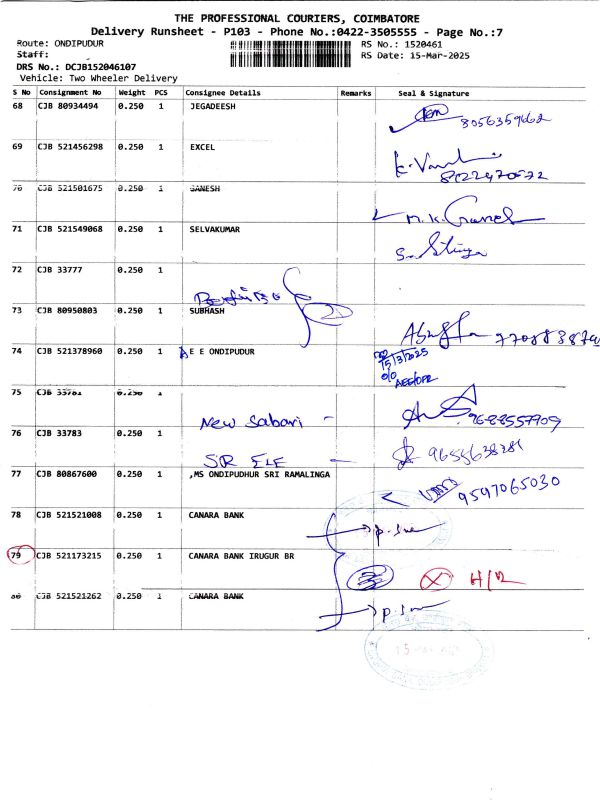 THE PROFESSIONAL COURIERS, COIMBATORE
Delivery Runsheet - P103 - Phone No.:0422-3505555 - Page No.:7
Route: ONDIPUDUR RS No.: 1520461
Staff: RS Date: 15-Mar-2025
DRS No.: DCJB152046107
Vehicle: Two Wheeler Delivery
S No Consignment No Weight PCS Consignee Details Remarks Seal & Signature
68 CJB 80934494 0.250 1 JEGADEESH
8056359662
69 CJB 521456298 0.250 1 EXCEL
70 CJB 521501675 0.250 1 GANESH
71 CJB 521549068 0.250 1 SELVAKUMAR
72 CJB 33777 0.250 1
73 CJB 80950803 0.250 1 SUBHASH
74 CJB 521378960 0.250 1 A E E ONDIPUDUR
15/3/2025
AEE/OPR
75 CJB 33781 0.250 1
New Sabari - 9688557909
76 CJB 33783 0.250 1
SR ELE - 9655638281
77 CJB 80867600 0.250 1 ,MS ONDIPUDHUR SRI RAMALINGA
9597065030
78 CJB 521521008 0.250 1 CANARA BANK
79 CJB 521173215 0.250 1 CANARA BANK IRUGUR BR
80 CJB 521521262 0.250 1 CANARA BANK